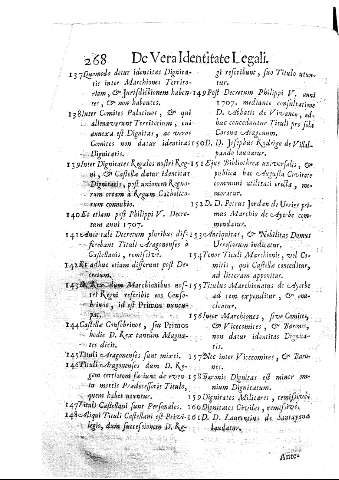 268 De Vera Identitate Legali.
137 Quomodo datur identitas Dignita-
tis inter Marchiones Territo-
rium, & Jurisdictionem haben-
tes, & non habentes.
138 Inter Comites Palatinos, & qui
aliàs habent Territorium, cui
annexa est Dignitas, ac veros
Comites non datur identitas
Dignitatis.
139 Inter Dignitates Regales nostri Reg-
ni, & Castellæ datur identitas
Dignitatis, post unionem Regno-
rum creatam à Regum Catholico-
rum connubio.
140 Et etiam post Philippi V. Decre-
tum anni 1707.
141 Ante tale Decretum pluribus dif-
ferebant Tituli Aragonenses à
Castellani, remissivè.
142 Et adhuc etiam differunt post De-
cretum.
143 & Rex dum Marchionibus nos-
tri Regni rescribit vos Conso-
brinos, id est Primos nuncu-
pat.
144 Castellæ Consobrinos, seu Primos
hodie D. Rex tantùm Magna-
tes dicit.
145 Tituli Aragonenses sunt mixti.
146 Tituli Aragonenses dum D. Re-
gem certiorem faciunt de vero
in mortis Prædecessoris Titulo,
quem habet nuntur.
147 Tituli Castellani sunt Personales.
148 Aliqui Tituli Castellani est Privi-
legio, dum successionem D. Re-
gi rescribunt, suo Titulo utun-
tur.
149 Post Decretum Philippi V. anni
1707. mediante consultatione
D. Abbatis de Vivanco, ad-
huc concedantur Tituli pro ista
Corona Aragonum.
150 D. D. Josephus Rodrigo de Villal-
pando laudatur.
151 Ejus Bibliotheca universalis, &
publica hac Augusta Civitate
communi utilitati erecta, me-
moratur.
152 D. D. Petrus Jordan de Urries pri-
mus Marchio de Ayerbe com-
mendatur.
153 Antiquitas, & Nobilitas Domus
Urresiorum indicatur.
154 Tenor Tituli Marchionis, vel Co-
mitis, qui Castellæ conceditur,
ad litteram apponitur.
155 Titulus Marchionatus de Ayerbe
ad rem expenditur, & enu-
cleatur.
156 Inter Marchiones, sive Comites,
& Vicecomites, & Barones,
non datur identitas Dignita-
tis.
157 Nec inter Vicecomites, & Baro-
nes.
158 Baronis Dignitas est minor om-
nium Dignitatum.
159 Dignitates Militares, remissivè.
160 Dignitates Civiles, remissivè.
161 D. D. Laurentius de Santayana
laudatur.
Ante-